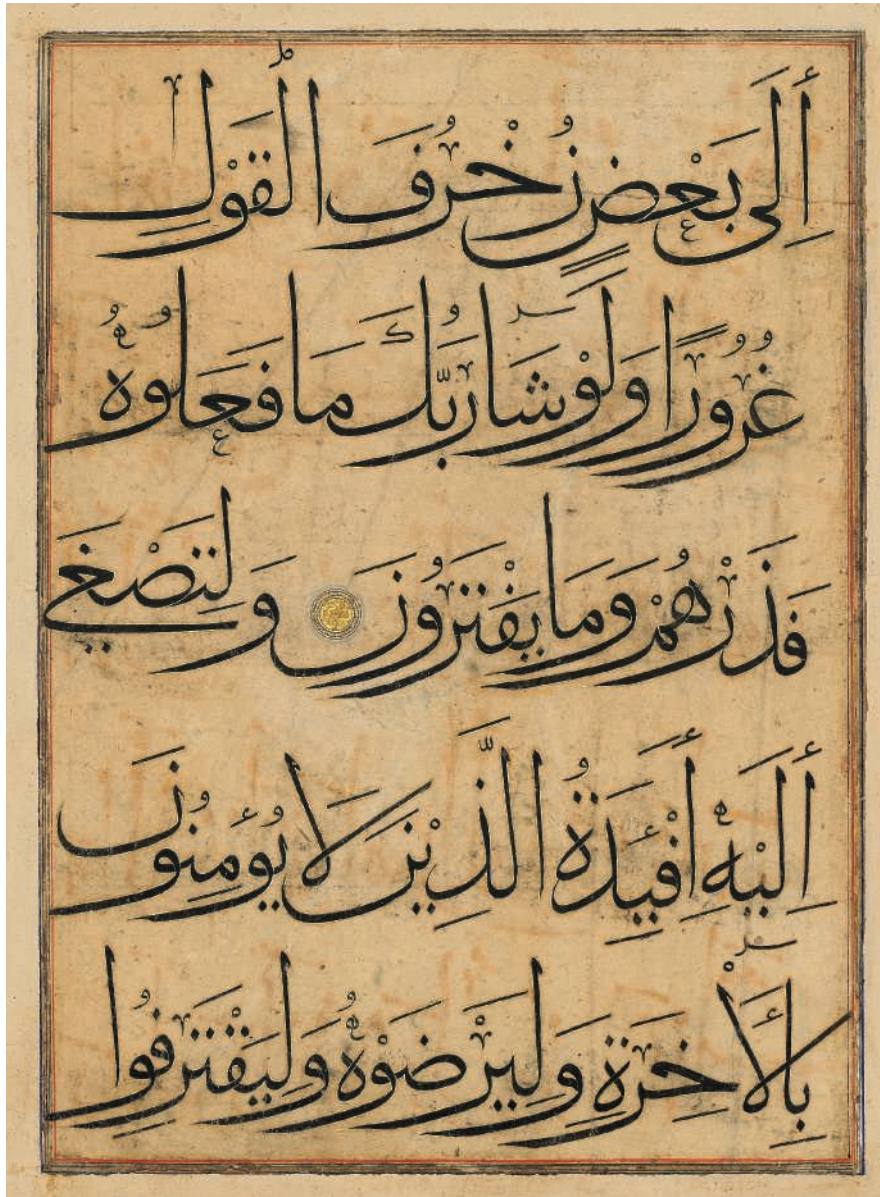 إَلَى بَعْضٍ زُخْرُفَ الْقَوْلِ
غُرُورًا وَلَوْ شَا رَبُّكَ مَا فَعَلُوهُ
فَذَرْهُمْ وَمَا يَفْتَرُونَ وَلِتَصْغَى
إَلَيْهِ أَفْئِدَةُ الَّذِينَ لَا يُؤْمِنُونَ
بِالْأَخِرَةِ وَلِيَرْضَوْهُ وَلِيَقْتَرِفُوا